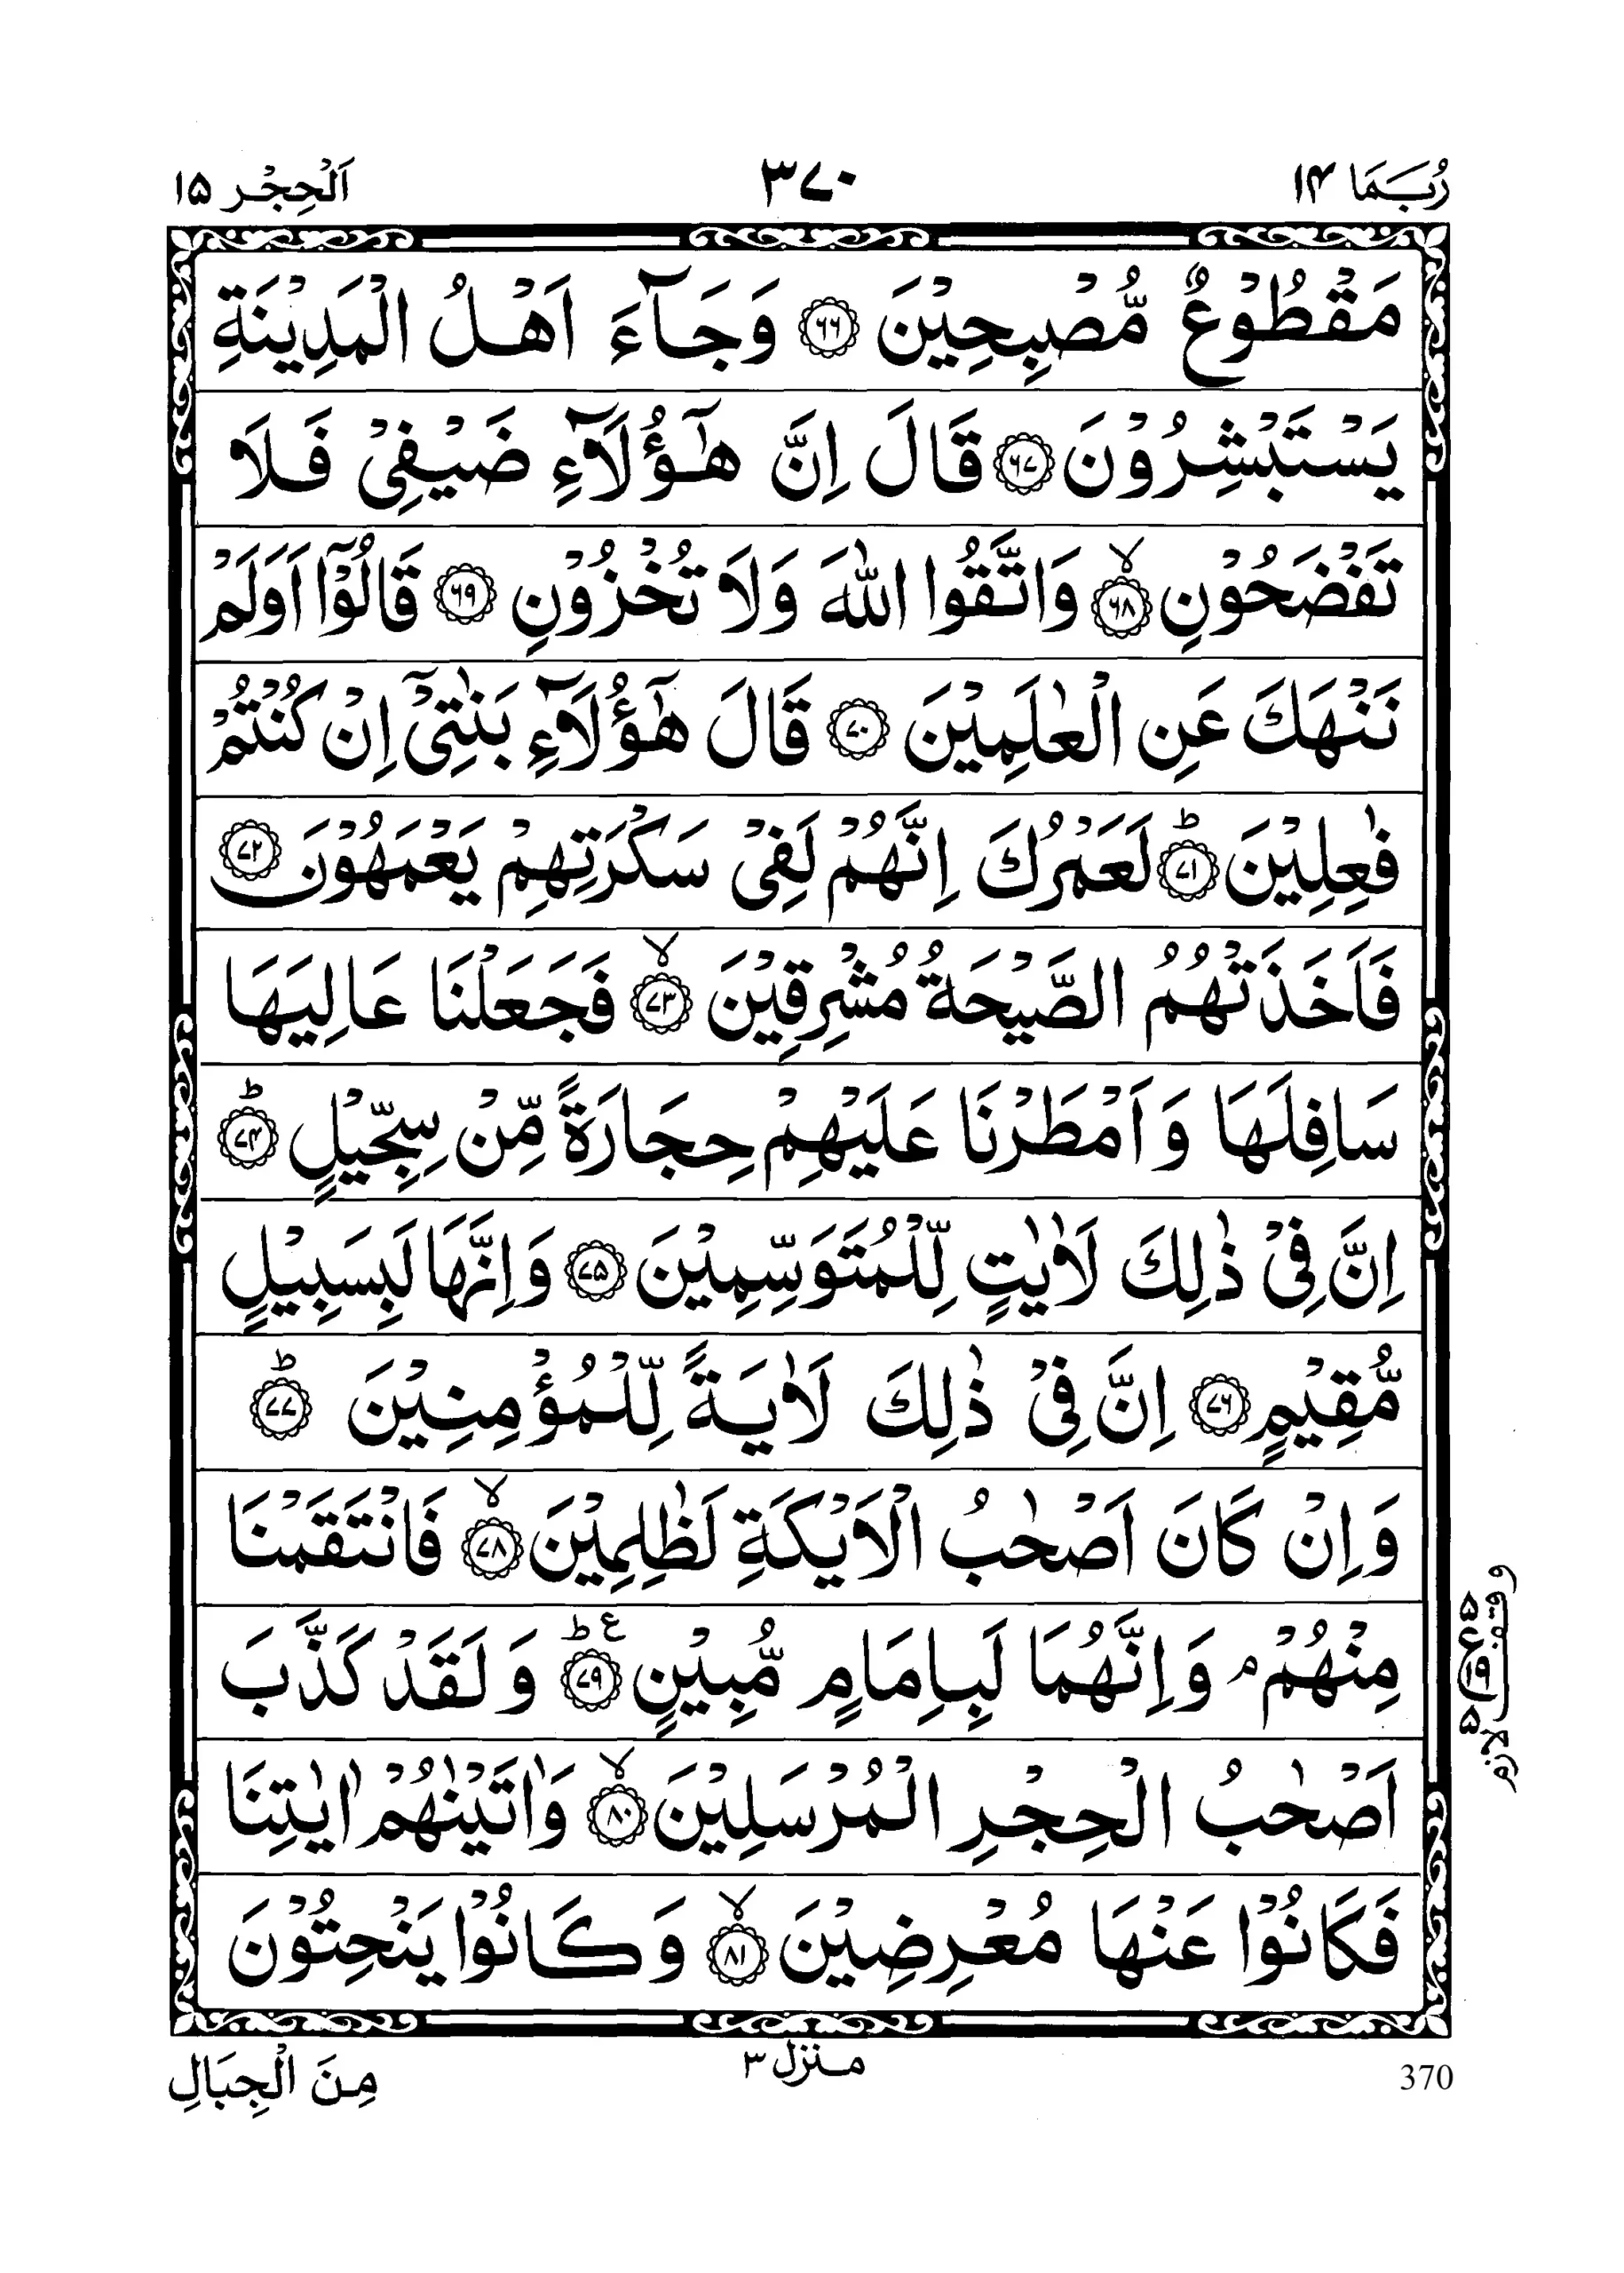 رُبَمَا ۱۴
۳۷۰
اَلْحِجْر ۱۵
مَقْطُوْعٌ مُّصْبِحِيْنَ ۶۶ وَجَآءَ اَهْلُ الْمَدِيْنَةِ
يَسْتَبْشِرُوْنَ ۶۷ قَالَ اِنَّ هٰٓؤُلَآءِ ضَيْفِيْ فَلَا
تَفْضَحُوْنِ ۙ۶۸ وَاتَّقُوا اللّٰهَ وَلَا تُخْزُوْنِ ۶۹ قَالُوْٓا اَوَلَمْ
نَنْهَكَ عَنِ الْعٰلَمِيْنَ ۷۰ قَالَ هٰٓؤُلَآءِ بَنٰتِيْٓ اِنْ كُنْتُمْ
فٰعِلِيْنَ ؕ۷۱ لَعَمْرُكَ اِنَّهُمْ لَفِيْ سَكْرَتِهِمْ يَعْمَهُوْنَ ۷۲
فَاَخَذَتْهُمُ الصَّيْحَةُ مُشْرِقِيْنَ ۙ۷۳ فَجَعَلْنَا عَالِيَهَا
سَافِلَهَا وَاَمْطَرْنَا عَلَيْهِمْ حِجَارَةً مِّنْ سِجِّيْلٍ ؕ۷۴
اِنَّ فِيْ ذٰلِكَ لَاٰيٰتٍ لِّلْمُتَوَسِّمِيْنَ ۷۵ وَاِنَّهَا لَبِسَبِيْلٍ
مُّقِيْمٍ ۷۶ اِنَّ فِيْ ذٰلِكَ لَاٰيَةً لِّلْمُؤْمِنِيْنَ ؕ۷۷
وَاِنْ كَانَ اَصْحٰبُ الْاَيْكَةِ لَظٰلِمِيْنَ ۙ۷۸ فَانْتَقَمْنَا
مِنْهُمْ ۘ وَاِنَّهُمَا لَبِاِمَامٍ مُّبِيْنٍ ؕ۷۹ ع وَلَقَدْ كَذَّبَ
اَصْحٰبُ الْحِجْرِ الْمُرْسَلِيْنَ ۙ۸۰ وَاٰتَيْنٰهُمْ اٰيٰتِنَا
فَكَانُوْا عَنْهَا مُعْرِضِيْنَ ۙ۸۱ وَكَانُوْا يَنْحِتُوْنَ
وقف لازم
ع
۵
۱۹
۵
مِنَ الْجِبَالِ
منزل ۳
370